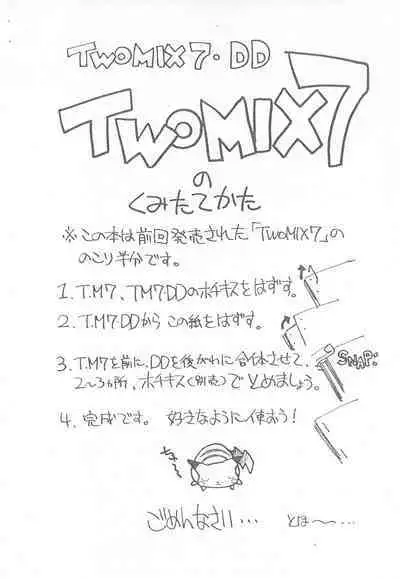 TWOMIX7・DD
TWOMIX7
の
くみたてかた
※この本は前回発売された「TWOMIX7」の
のこり半分です。
1. T.M7、TM7・DDのホチキスをはずす。
2. T.M7・DDから この紙をはずす。
3. T.M7を前に、DDを後がわに合体させて、
2〜3か所、ホチキス(別売)でとめましょう。
SNAP!
4. 完成です。 好きなように使おう!
ごめんなさい… とほ〜…